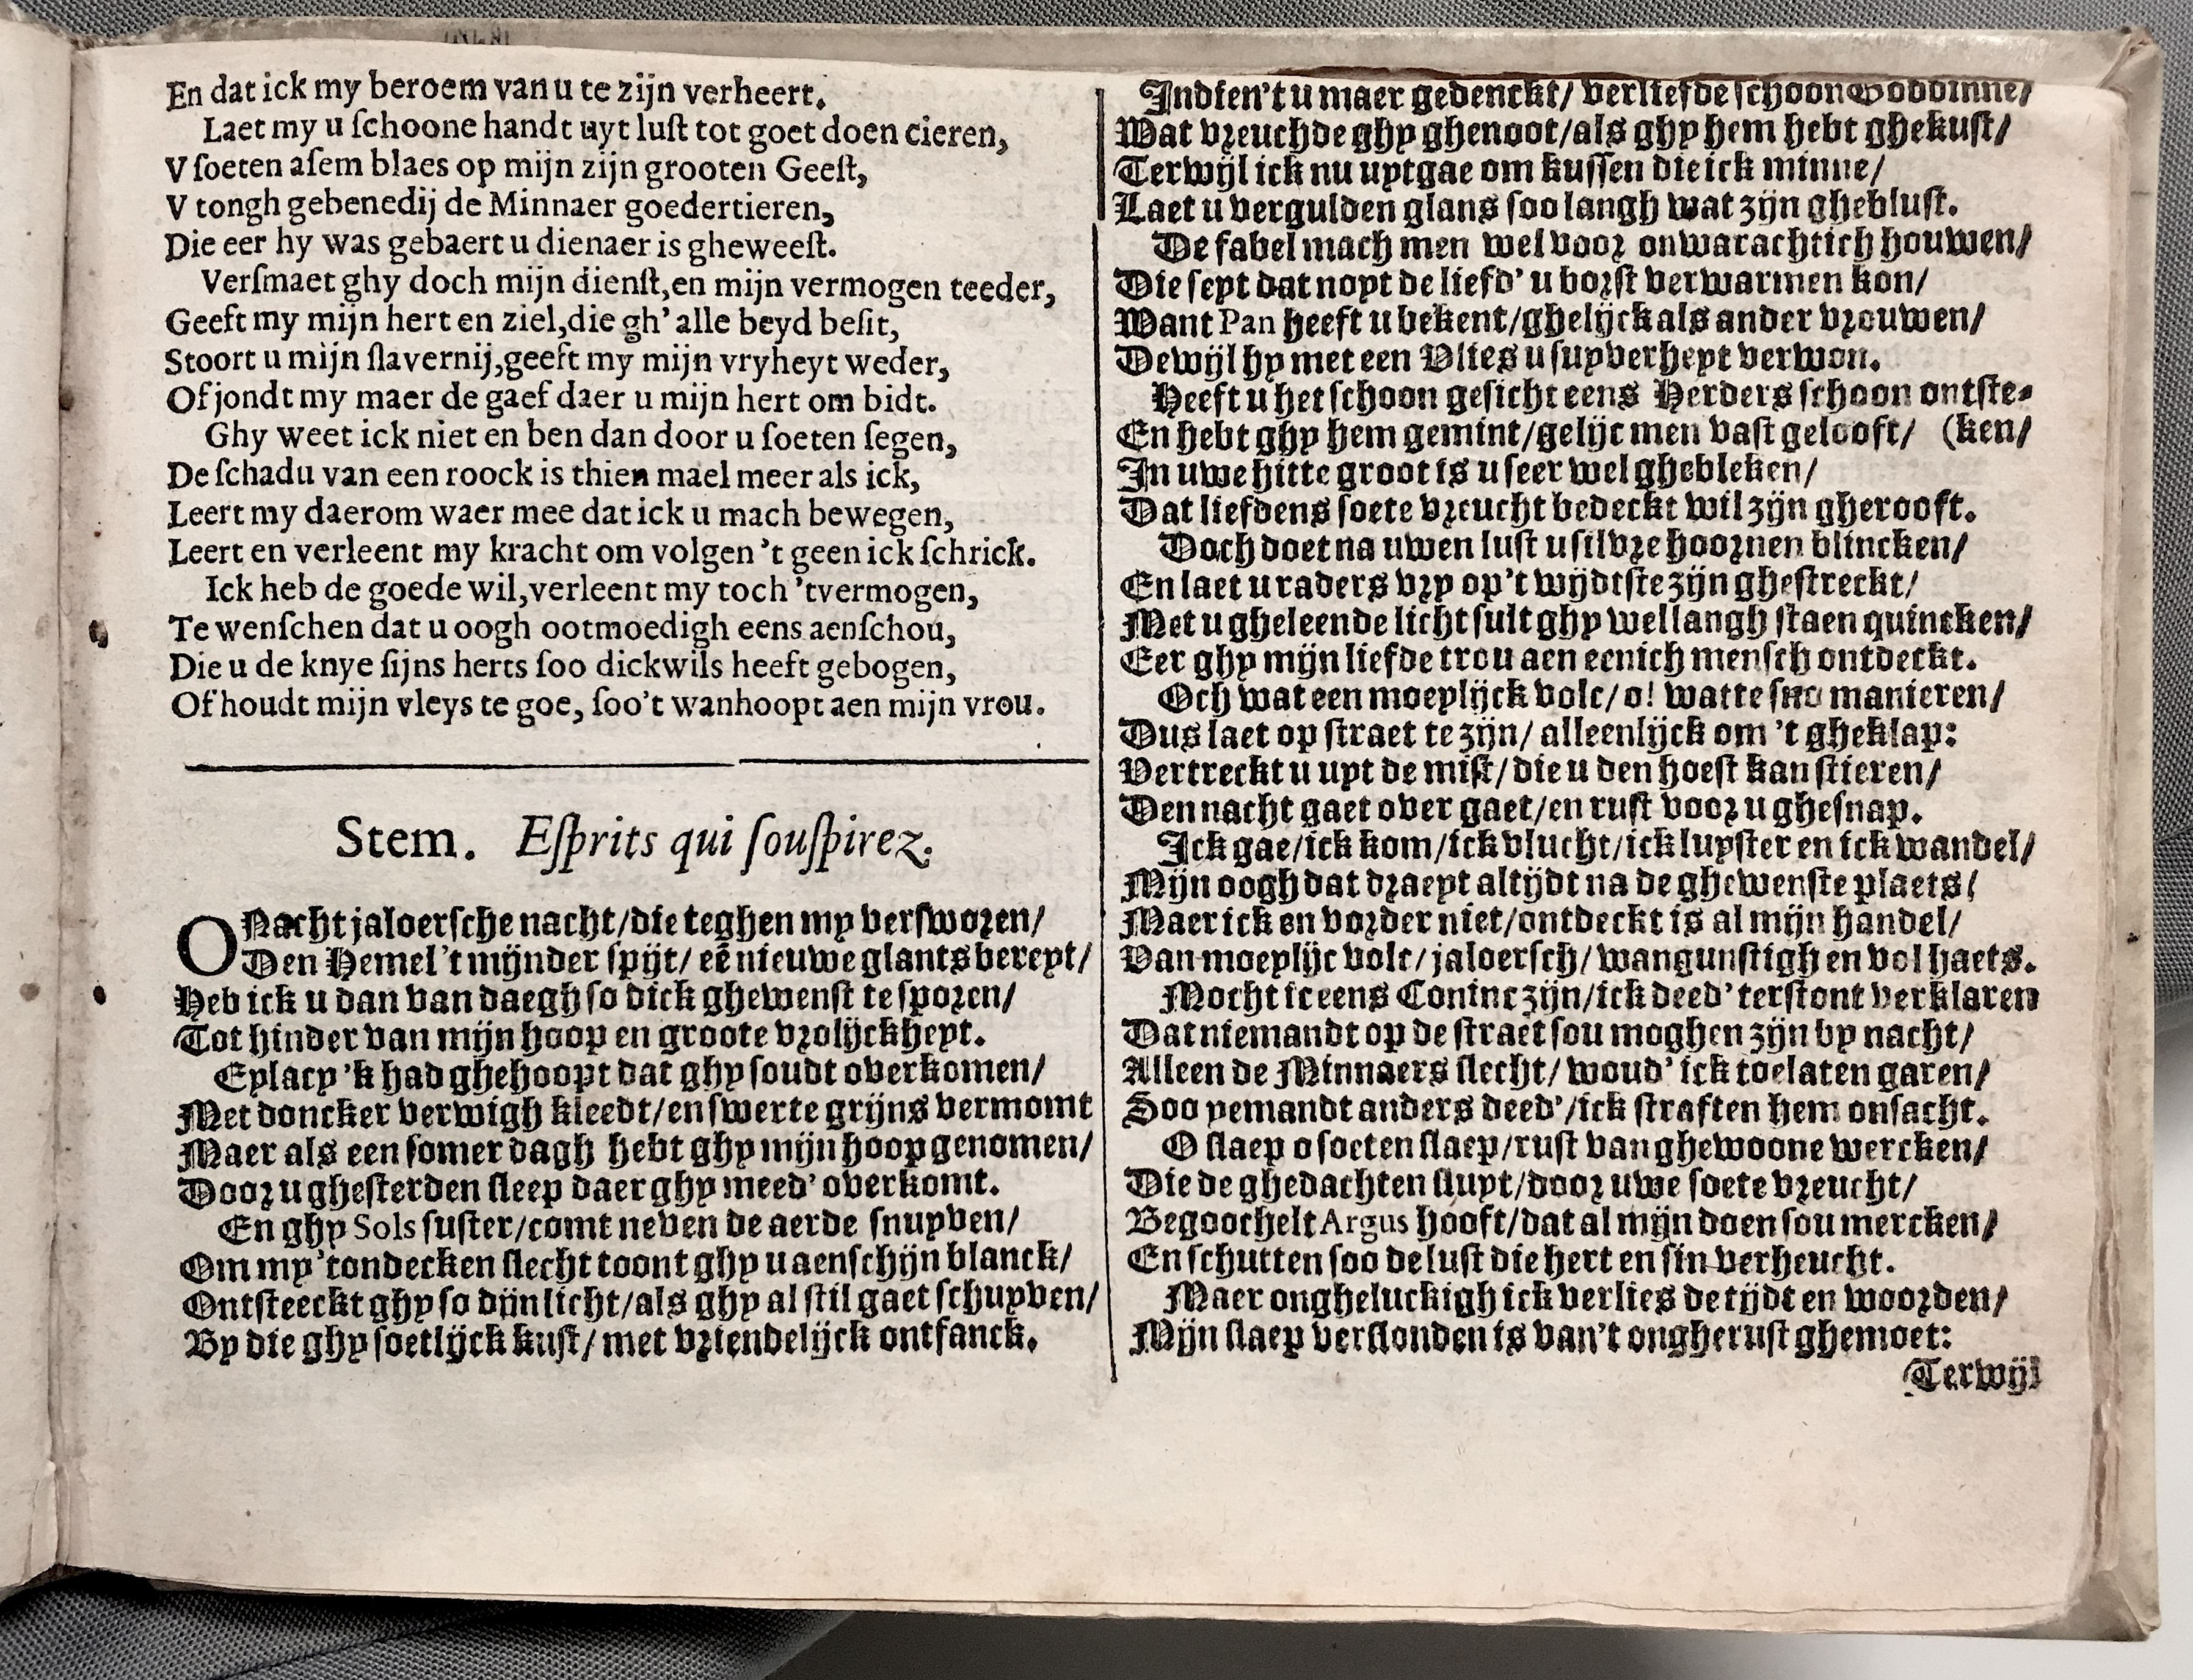 En dat ick my beroem van u te zijn verheert.
Laet my u ſchoone handt uyt luſt tot goet doen cieren,
V ſoeten aſem blaes op mijn zijn grooten Geeſt,
V tongh gebenedij de Minnaer goedertieren,
Die eer hy was gebaert u dienaer is gheweeſt.
Verſmaet ghy doch mijn dienſt,en mijn vermogen teeder,
Geeft my mijn hert en ziel,die gh' alle beyd beſit,
Stoort u mijn ſlavernij,geeft my mijn vryheyt weder,
Of jondt my maer de gaef daer u mijn hert om bidt.
Ghy weet ick niet en ben dan door u ſoeten ſegen,
De ſchadu van een roock is thien mael meer als ick,
Leert my daerom waer mee dat ick u mach bewegen,
Leert en verleent my kracht om volgen 't geen ick ſchrick.
Ick heb de goede wil,verleent my toch 'tvermogen,
Te wenſchen dat u oogh ootmoedigh eens aenſchou,
Die u de knye ſijns herts ſoo dickwils heeft gebogen,
Of houdt mijn vleys te goe, ſoo't wanhoopt aen mijn vrou.
Stem. Eſprits qui ſouſpirez.
O Nacht jaloerſche nacht/die teghen my verſworen/
Den Hemel 't mijnder ſpijt/ eē nieuwe glants bereyt/
Heb ick u dan van daegh ſo dick ghewenſt te ſporen/
Tot hinder van mijn hoop en groote vrolijckheyt.
Eylacy 'k had ghehoopt dat ghy ſoudt overkomen/
Met doncker verwigh kleedt/en ſwerte grijns vermomt
Maer als een ſomer dagh hebt ghy mijn hoop genomen/
Door u gheſterden ſleep daer ghy meed' overkomt.
En ghy Sols ſuſter/comt neven de aerde ſnuyven/
Om my 'tondecken ſlecht toont ghy u aenſchijn blanck/
Ontſteeckt ghy ſo dijn licht/als ghy al ſtil gaet ſchuyven/
By die ghy ſoetlijck kuſt/ met vriendelijck ontfanck.
Indien't u maer gedenckt/ verliefde ſchoon Goddinne/
Wat vreuchde ghy ghenoot/als ghy hem hebt ghekuſt/
Terwijl ick nu uytgae om kuſſen die ick minne/
Laet u vergulden glans ſoo langh wat zijn ghebluſt.
De fabel mach men wel voor onwarachtich houwen/
Die ſeyt dat noyt de liefd' u borſt verwarmen kon/
Want Pan heeft u bekent/ghelijck als ander vrouwen/
Dewijl hy met een Vlies u ſuyverheyt verwon.
Heeft u het ſchoon geſicht eens Herders ſchoon ontſte-
En hebt ghy hem gemint/gelijc men vaſt gelooft/ (ken/
In uwe hitte groot is u ſeer wel ghebleken/
Dat liefdens ſoete vreucht bedeckt wil zijn gherooft.
Doch doet na uwen luſt u ſilvre hoornen blincken/
En laet u raders vry op't wijdtſte zijn gheſtreckt/
Met u gheleende licht ſult ghy wel langh ſtaen quincken/
Eer ghy mijn liefde trou aen eenich menſch ontdeckt.
Och wat een moeylijck volc/o! watte ſno manieren/
Dus laet op ſtraet te zijn/ alleenlijck om 't gheklap:
Vertreckt u uyt de miſt/die u den hoeſt kan ſtieren/
Den nacht gaet over gaet/en ruſt voor u gheſnap.
Ick gae/ick kom/ick vlucht/ick luyſter en ick wandel/
Mijn oogh dat draeyt altijdt na de ghewenſte plaets/
Maer ick en vorder niet/ontdeckt is al mijn handel/
Van moeylijc volc/jaloerſch/wangunſtigh en vol haets.
Mocht ic eens Coninc zijn/ick deed' terſtont verklaren
Dat niemandt op de ſtraet ſou moghen zijn by nacht/
Alleen de Minnaers ſlecht/ woud' ick toelaten garen/
Soo yemandt anders deed'/ick ſtraften hem onſacht.
O ſlaep o ſoeten ſlaep/ruſt van ghewoone wercken/
Die de ghedachten ſluyt/door uwe ſoete vreucht/
Begoochelt Argus hooft/dat al mijn doen ſou mercken/
En ſchutten ſoo de luſt die hert en ſin verheucht.
Maer ongheluckigh ick verlies de tijdt en woorden/
Mijn ſlaep verſlonden is van't ongheruſt ghemoet:
Terwijl